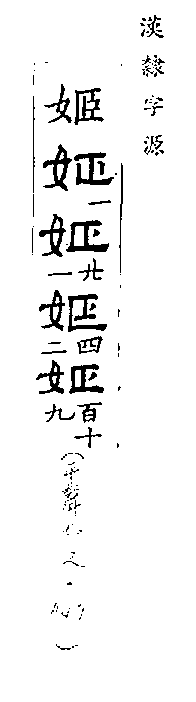 漢隸字源
姬姬一姬廿一姬四二姬百十九